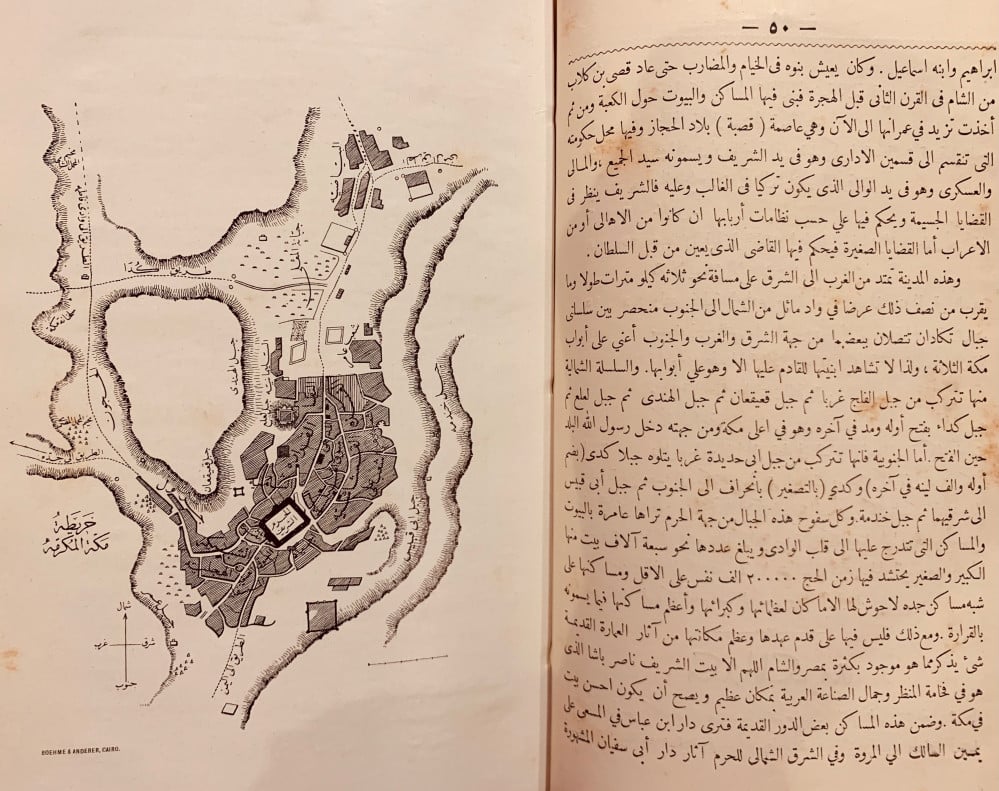 — ٥٠ —
ابراهيم وابنه اسماعيل . وكان يعيش بنوه فى الخيام والمضارب حتى عاد قصى بن كلاب
من الشام فى القرن الثانى قبل الهجرة فبنى فيها المساكن والبيوت حول الكعبة ومن ثم
أخذت تزيد في عمرانها الى الآن وهي عاصمة ( قصبة ) بلاد الحجاز وفيها محل حكومته
التى تنقسم الى قسمين الادارى وهو فى يد الشريف ويسمونه سيد الجميع ،والمالى
والعسكرى وهو فى يد الوالى الذى يكون تركيا فى الغالب وعليه فالشريف ينظر فى
القضايا الجسيمة ويحكم فيها علي حسب نظامات أربابها ان كانوا من الاهالى أو من
الاعراب أما القضايا الصغيرة فيحكم فيها القاضى الذى يعين من قبل السلطان .
وهذه المدينة تمتد من الغرب الى الشرق على مسافة نحو ثلاثه كيلو مترات طولا وما
يقرب من نصف ذلك عرضا في واد مائل من الشمال الى الجنوب منحصر بين سلسلتى
جبال تكادان تتصلان ببعضهما من جهة الشرق والغرب والجنوب أعني على أبواب
مكة الثلاثة ، ولذا لا تشاهد ابنيتها للقادم عليها الا وهو علي أبوابها. والسلسلة الشمالية
منها تتركب من جبل الفلج غربا ثم جبل قعيقعان ثم جبل الهندى ثم جبل لعلع ثم
جبل كداء بفتح أوله ومد فى آخره وهو في اعلى مكة ومن جهته دخل رسول الله البلد
حين الفتح .أما الجنوبية فانها تتركب من جبل ابى حديدة غربا يتلوه جبلا كدى(بضم
أوله والف لينه في آخره) وكدي (بالتصغير ) بأنحراف الى الجنوب ثم جبل أبى قبيس
الى شرقيهما ثم جبل خندمة .وكل سفوح هذه الجبال من جهة الحرم تراها عامرة بالبيوت
والمساكن التى تتدرج عليها الى قلب الوادى و يبلغ عددها نحو سبعة آلاف بيت منها
الكبير والصغير يحتشد فيها زمن الحج ٢٠٠٠٠٠ الف نفس على الاقل ومساكنها على
شبه مساكن جده لاحوش لها الا ماكان لعظمائها وكبرائها وأعظم مساكنها فيما يسمونه
بالقرارة .ومع ذلك فليس فيها على قدم عهدها وعظم مكانتها من آثار العمارة القديمة
شئ يذكر مما هو موجود بكثرة بمصر والشام اللهم الا بيت الشريف ناصر باشا الذى
هو في فخامة المنظر وجمال الصناعة العربية بمكان عظيم ويصح أن يكون احسن بيت
في مكة .وضمن هذه المساكن بعض الدور القديمة فترى دار ابن عباس في المسعى على
يمين السالك الي المروة وفى الشرق الشمالى للحرم آثار دار أبى سفيان المشهورة
خريطة
مكة المكرمة
شمال
شرق
غرب
جنوب
جبل الهندى
جبل قعيقعان
جبل ابى قبيس
جبل خندمه
جرول
الطريق الى اليمن
BOEHME & ANDERER, CAIRO.